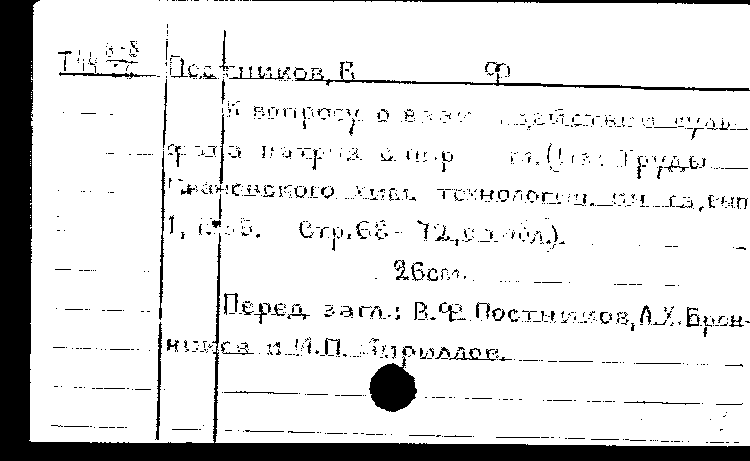 Т44
Постников, В Ф
К вопросу о действии суль-
фата натрия с (Из: Труды
Ивановского хим. технологич. ин-та, вып
1, Стр. 68-72, табл.).
26 см.
Перед загл.: В.Ф. Постников, А.Х. Брон-
никва и И.П. Кириллов.